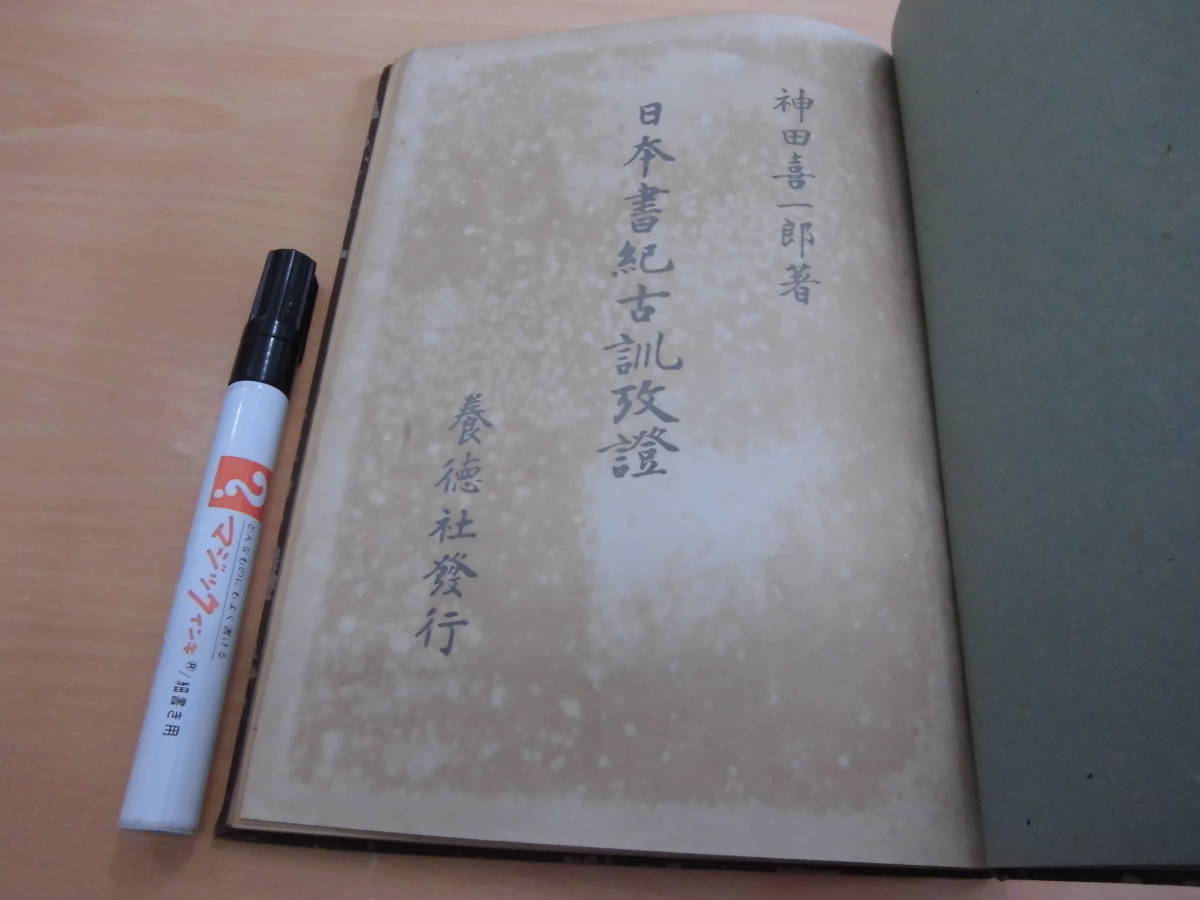 神田喜一郎著
日本書紀古訓攷證
養德社發行
?
どんなものにもよく書ける
マジックインキ®/細書き用